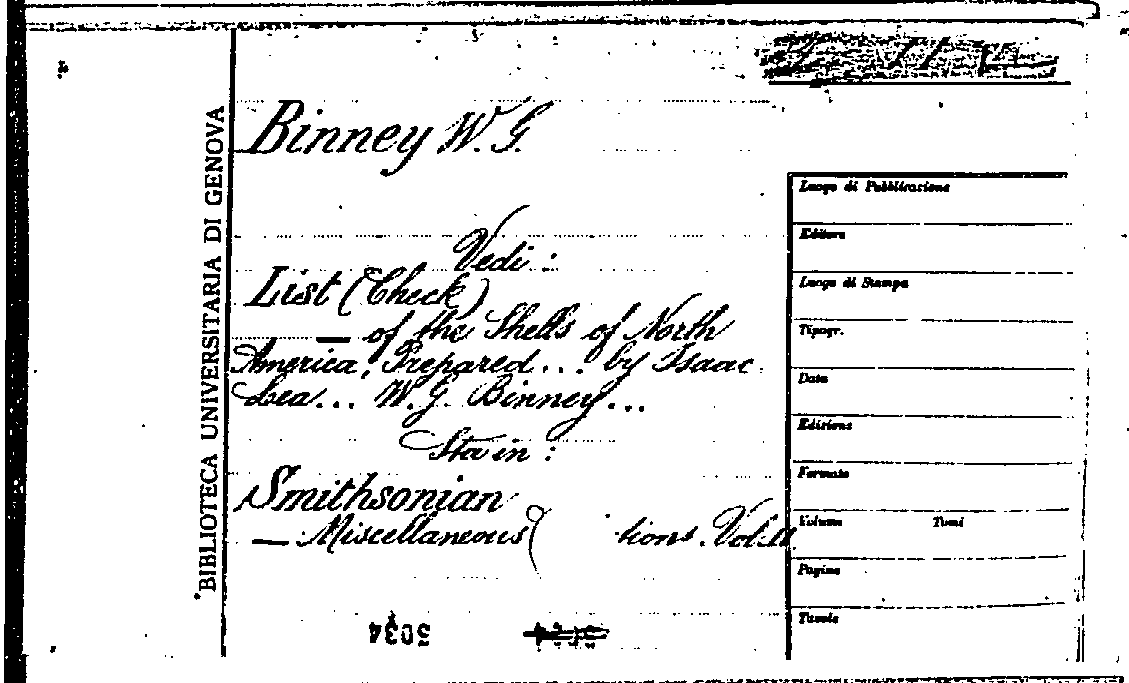 BIBLIOTECA UNIVERSITARIA DI GENOVA
Binney W. G.
Vedi :
List (Check)
— of the Shells of North
America. Prepared... by Isaac
Lea... W. G. Binney...
Sta in :
Smithsonian
— Miscellaneous tions. Vol. II
5034
Luogo di Pubblicazione
Editore
Luogo di Stampa
Tipogr.
Data
Edizione
Formato
Volume Tomi
Pagine
Tavole